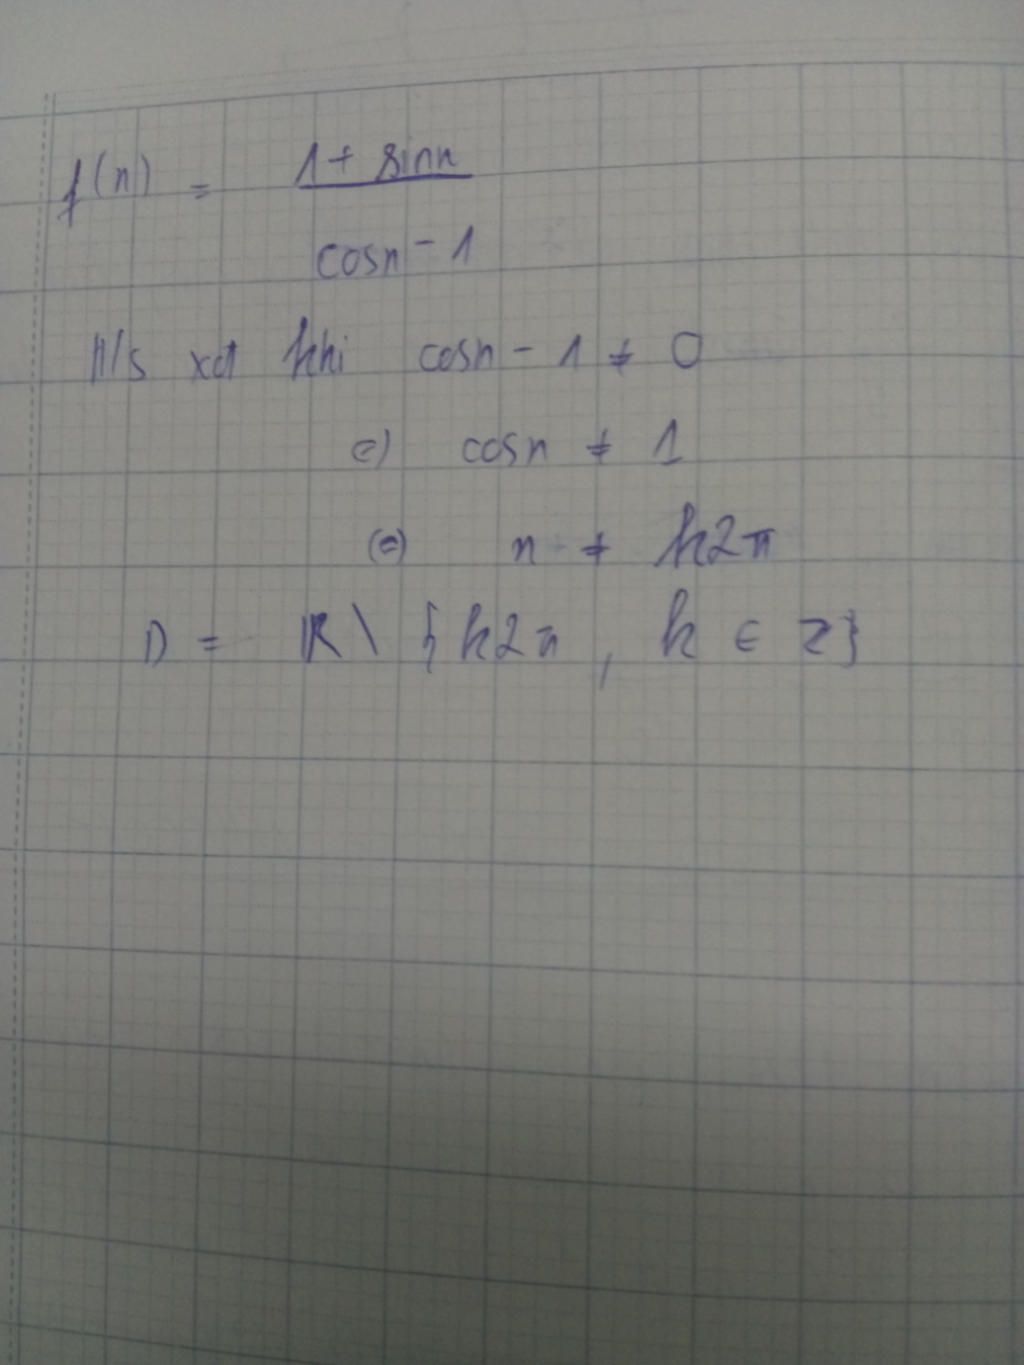 f(x) = 1 + sinx
cosx - 1
H/s xđ khi cosx - 1 ≠ 0
⇔ cosx ≠ 1
⇔ x ≠ k2π
D = R \ {k2π, k ∈ Z}